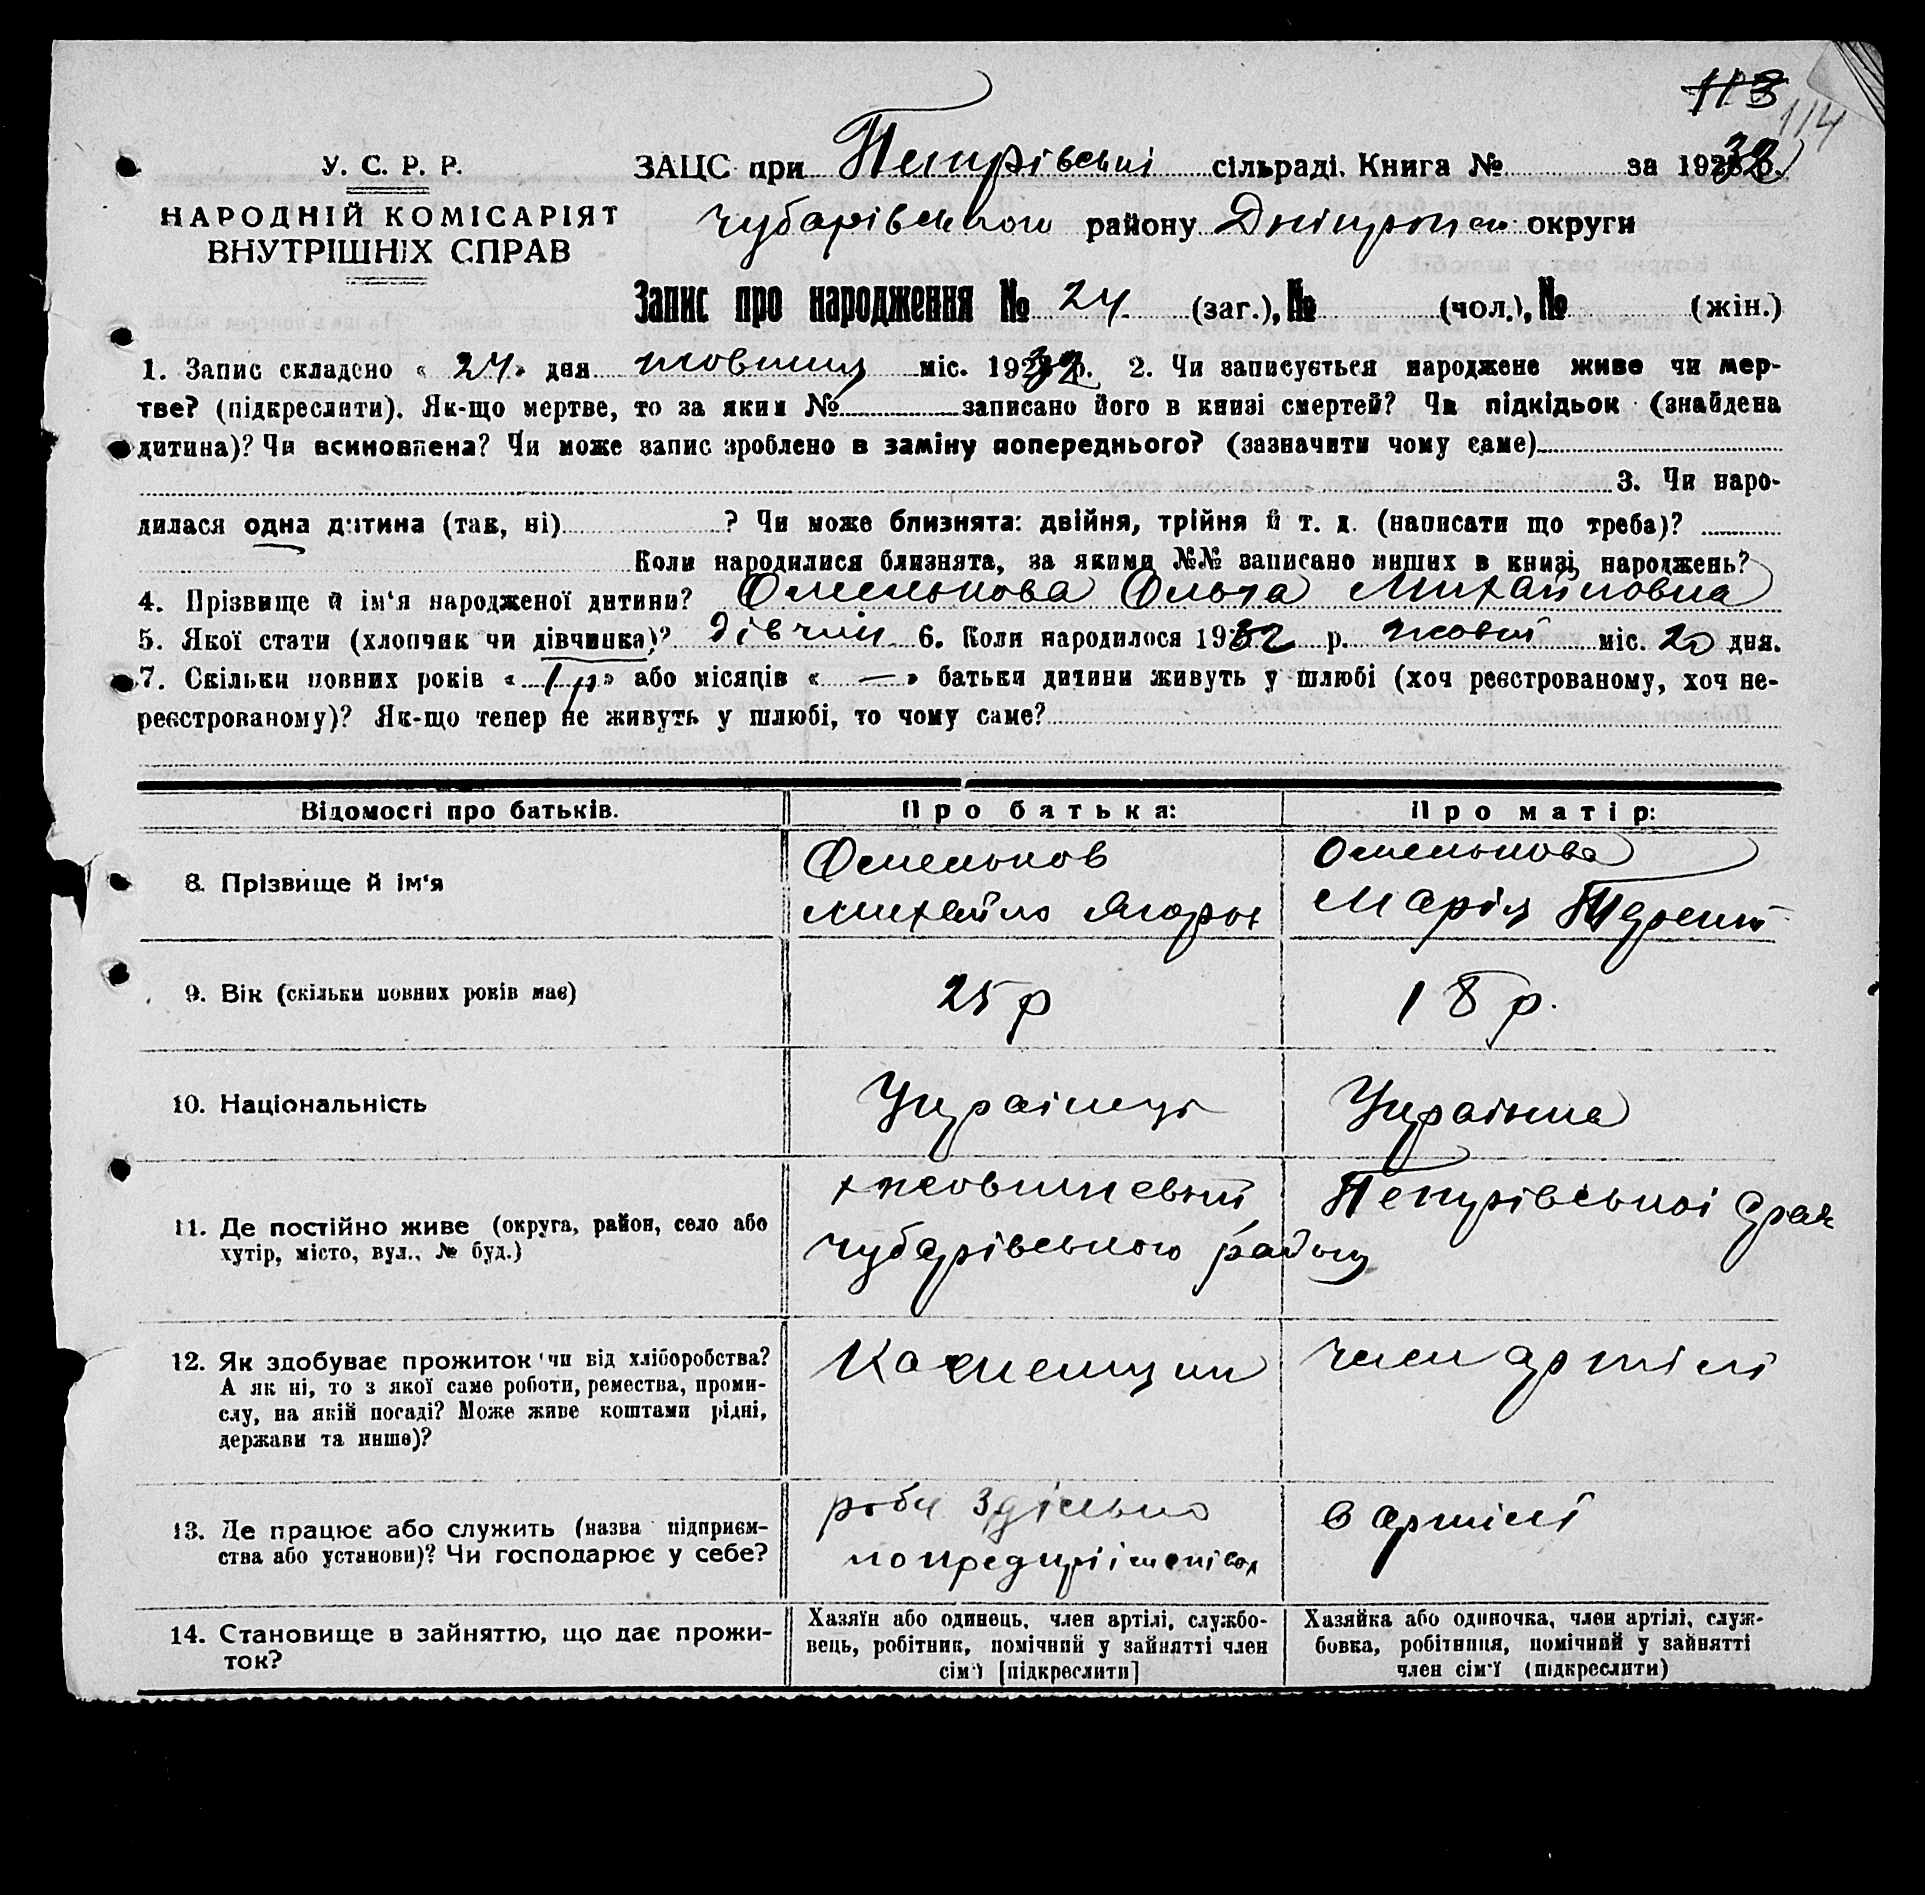 113
114
У. С. Р. Р.
НАРОДНІЙ КОМІСАРІЯТ
ВНУТРІШНІХ СПРАВ
ЗАЦС при Петрівські сільраді. Книга № за 1932 р.
Чубарівського району Дніпропет округи
Запис про народження № 24 (заг.), № (чол.), № (жін.)
1. Запис складено « 24 » дня жовтня міс. 1932 р. 2. Чи записується народжене живе чи мер-
тве? (підкреслити). Як-що мертве, то за яким № записано його в книзі смертей? Чи підкідьок (знайдена
дитина)? Чи всиновлена? Чи може запис зроблено в заміну попереднього? (зазначити чому саме)
3. Чи наро-
дилася одна дитина (так, ні) ? Чи може близнята: двійня, трійня й т. д. (написати що треба)?
Коли народилися близнята, за якими №№ записано инших в книзі народжень?
4. Прізвище й ім'я народженої дитини? Омелькова Ольга Михайловна
5. Якої стати (хлопчик чи дівчинка)? дівчин 6. Коли народилося 1932 р. жовт міс. 20 дня.
7. Скільки повних років « 1 р » або місяців « — » батьки дитини живуть у шлюбі (хоч реєстрованому, хоч не-
реєстрованому)? Як-що тепер не живуть у шлюбі, то чому саме?
Відомості про батьків. Про батька: Про матір:
8. Прізвище й ім'я
Омельков
Михайло
Омелькова
Марія
9. Вік (скільки повних років має) 25 р 18 р.
10. Національність Українець Українка
11. Де постійно живе (округа, район, село або
хутір, місто, вул., № буд.)
Чубарівського району
Петрівської
12. Як здобуває прожиток чи від хліборобства?
А як ні, то з якої саме роботи, ремества, проми-
слу, на якій посаді? Може живе коштами рідні,
держави та инше)?
член артілі
13. Де працює або служить (назва підприєм-
ства або установи)? Чи господарює у себе?
робе здільно
по
в артілі
14. Становище в зайняттю, що дає прожи-
ток?
Хазяїн або одинець, член артілі, службо-
вець, робітник, помічний у зайнятті член
сім'ї [підкреслити]
Хазяйка або одиночка, член артілі, служ-
бовка, робітниця, помічний у зайнятті
член сім'ї (підкреслити)